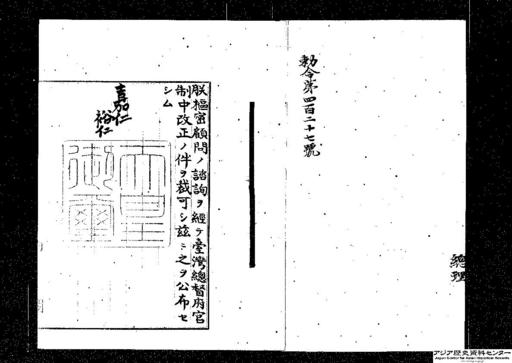 勅令第四百二十七號
朕樞密顧問ノ諮詢ヲ經テ臺灣總督府官
制中改正ノ件ヲ裁可シ玆ニ之ヲ公布セ
シム
嘉仁
裕仁
天皇
御璽
總理
アジア歴史資料センター
Japan Center for Asian Historical Records